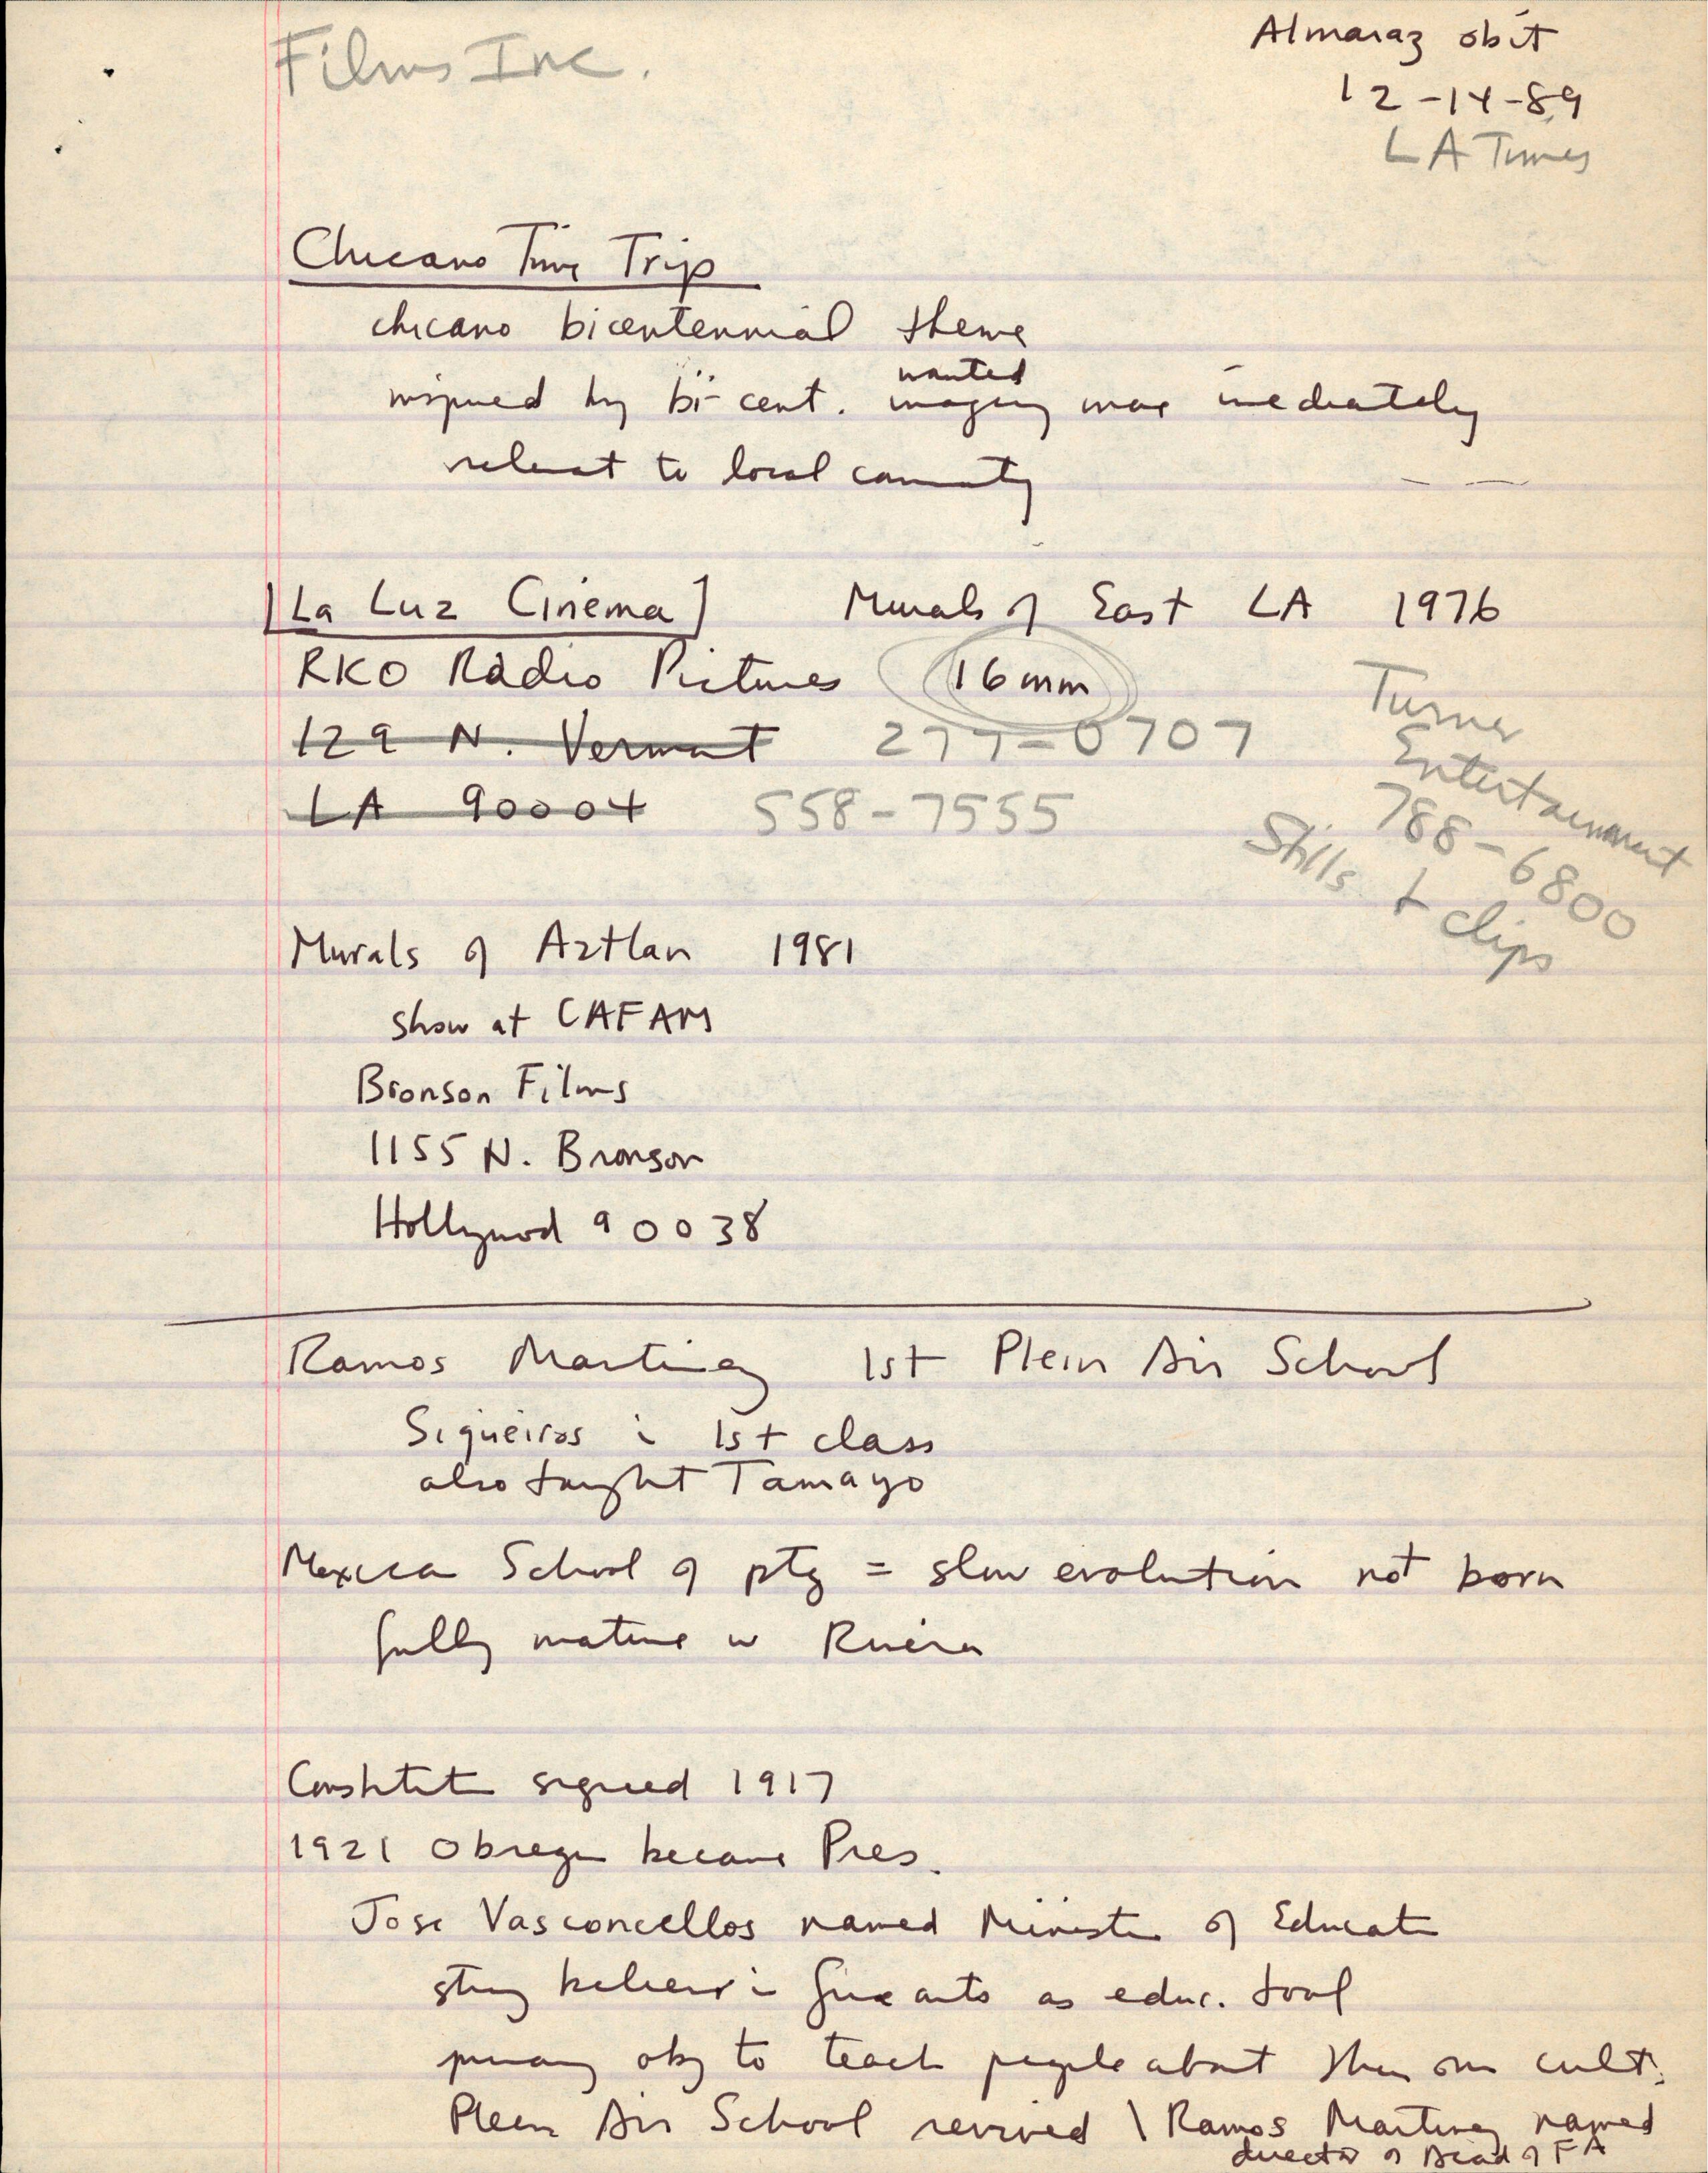 Films Inc.
Almaraz obit
12-14-89
LA Times
Chicano Time Trip
chicano bicentennial theme
inspired by bi-cent. wanted imagery more imediately
relevant to local community
[La Luz Cinema] Murals of East LA 1976
RKO Radio Pictures 16mm
129 N. Vermont 277-0707
LA 90004 558-7555
Turner
Entertainment
788-6800
Stills + clips
Murals of Aztlan 1981
show at CAFAM
Bronson Films
1155 N. Bronson
Hollywood 90038
Ramos Martinez 1st Plein Air School
Siqueiros i 1st class
also taught Tamayo
Mexican School of ptg = slow evolution not born
fully mature w Rivera
Constitut signed 1917
1921 Obregon became Pres.
Jose Vasconcellos named Minister of Educat
strong believer i fine arts as educ. tool
primary obj to teach people about their own cult.
Plein Air School revived \ Ramos Martinez named
director of Acad of FA